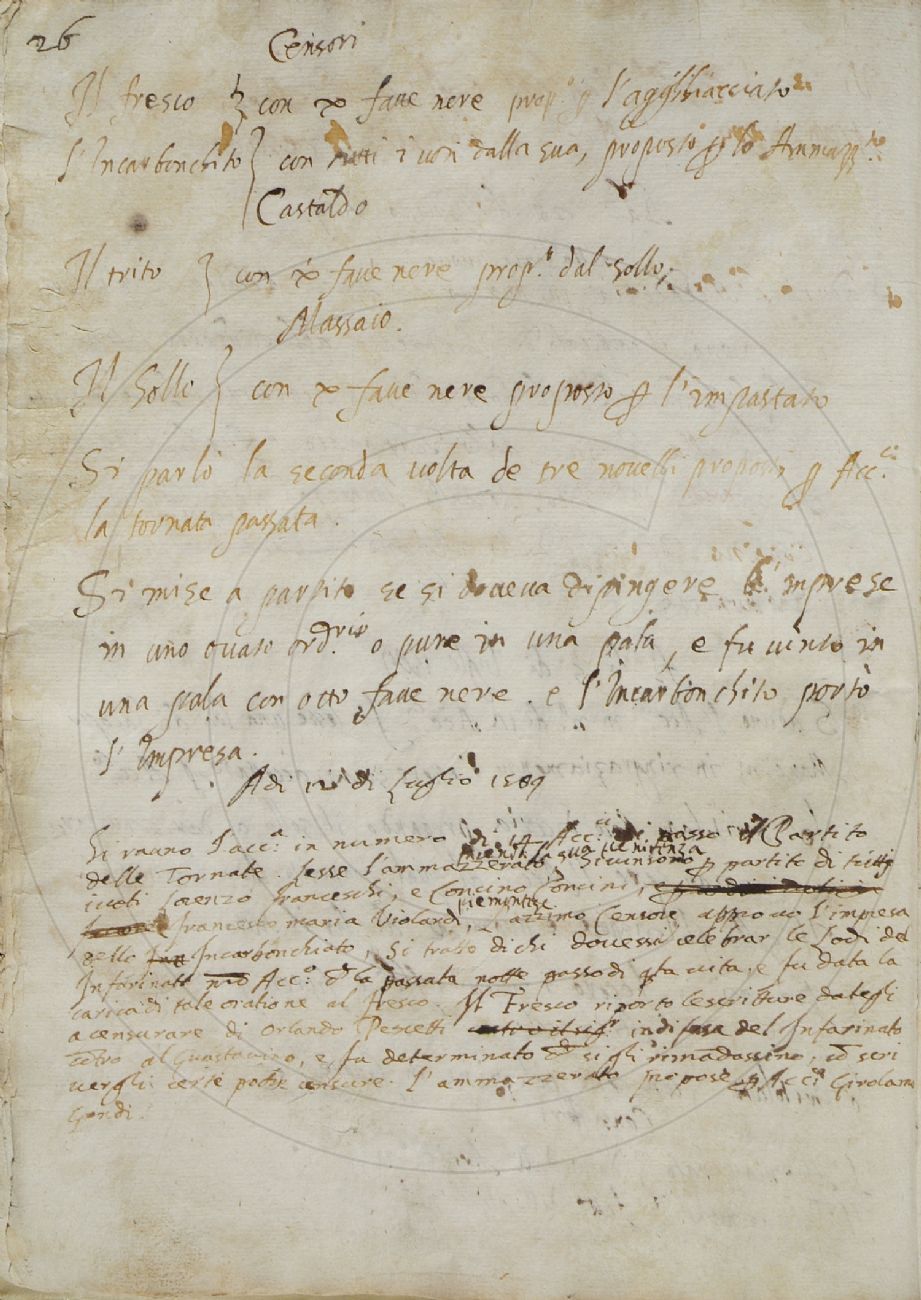 26
Censori
Il fresco } con 10 faue nere prop.o p l'agghiacciato
l'Incarbonchito } con tutti i uoti dalla sua, proposto p lo
Castaldo
Il trito } con 10 faue nere prop.o dal sollo,
Massaio.
Il Sollo } con 10 faue nere proposto p l'impastato
Si parlò la seconda uolta de tre nouelli proposti p Acc.ci
la tornata passata.
Si mise a partito se si doueua dipingere l'imprese
in uno ouato ord.rio o pure in una pala, e fu uinto in
una pala con otto faue nere. e l'Incarbonchito portò
l'Impresa.
Adi 12 di Luglio 1589
Si raunò l'acc.a in numero di Acc.ci passò il Partito
delle Tornate. Lesse l'ammazzerato Si uinsono p partito di tutti
intendi la sua
iuoti Lorenzo franceschi, e Concino Concini,
piemontese
francesco maria Vialardi, l'azzimo Censore approuò l'impresa
dello Incarbonchiato, Si trattò di chi douessi celebrar le Lodi del
Infarinato Acc.o la passata notte passò di q.ta uita. e fu data la
carica di tale oratione al fresco. Il Fresco riportò le scritture dategli
a censurare di Orlando Pescetti indifesa del Infarinato
cotro al Guastauino, e fu determinato si gli rimadassino, co scri
uergli certe poche censure. L'ammazzerato propose p Acc.o Girolamo
Gondi.